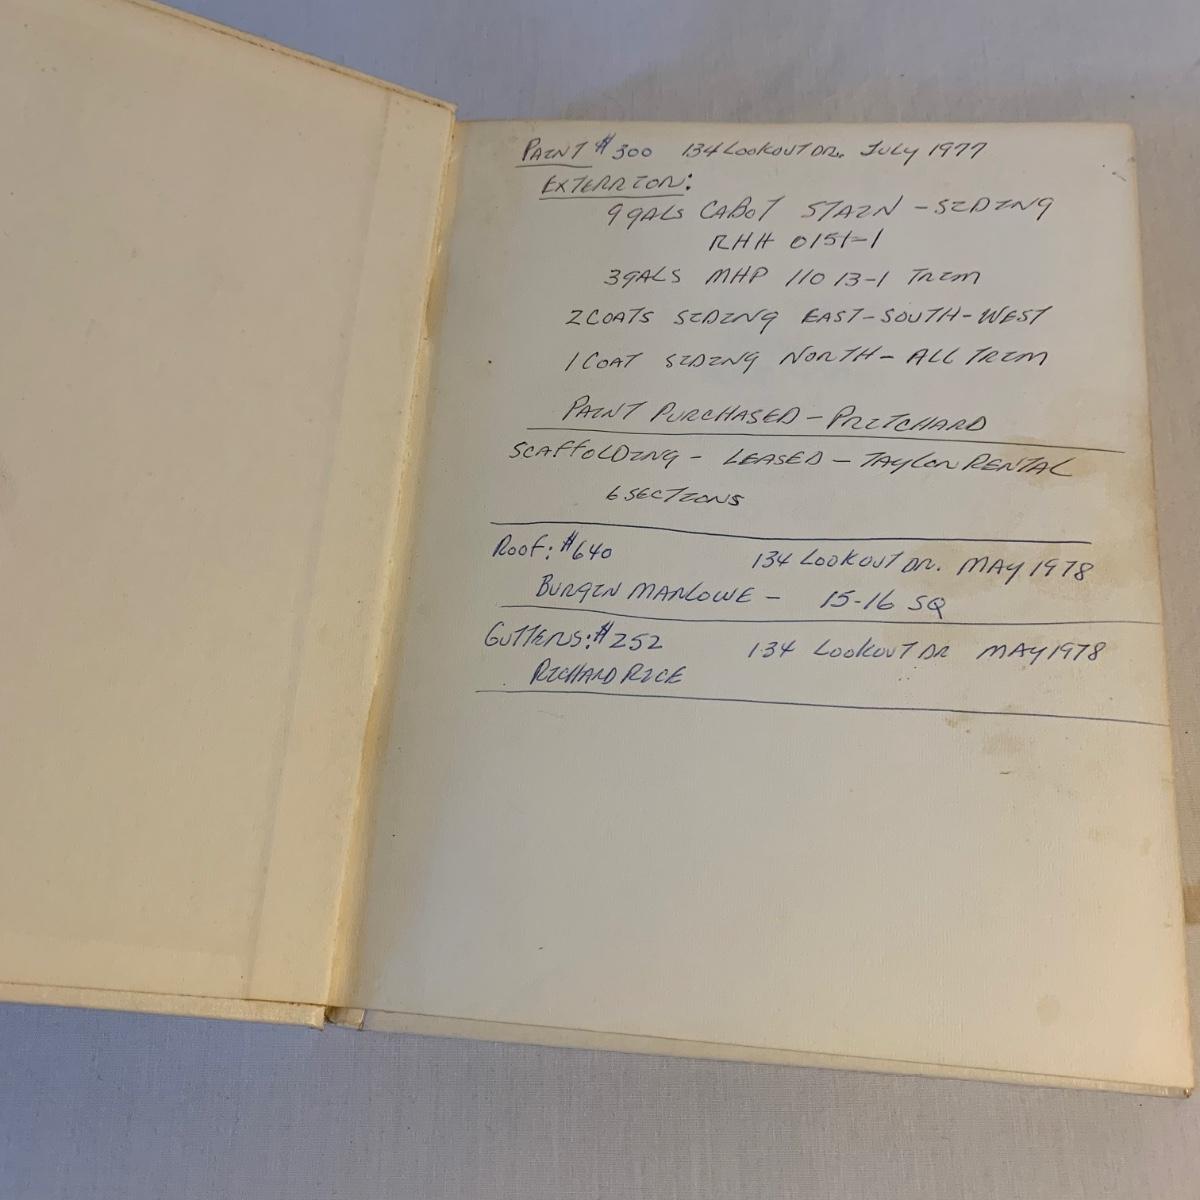 PAINT $300 134 LOOKOUT DR. JULY 1977
EXTERIOR:
9 GALS CABOT STAIN - SIDING
RHH 0151-1
3 GALS MHP 110 13-1 TRIM
2 COATS SIDING EAST-SOUTH-WEST
1 COAT SIDING NORTH - ALL TRIM
PAINT PURCHASED - PRITCHARD
SCAFFOLDING - LEASED - TAYLOR RENTAL
6 SECTIONS
ROOF: $640 134 LOOKOUT DR. MAY 1978
BURGIN MARLOWE - 15-16 SQ
GUTTERS: $252 134 LOOKOUT DR MAY 1978
RICHARD RICE